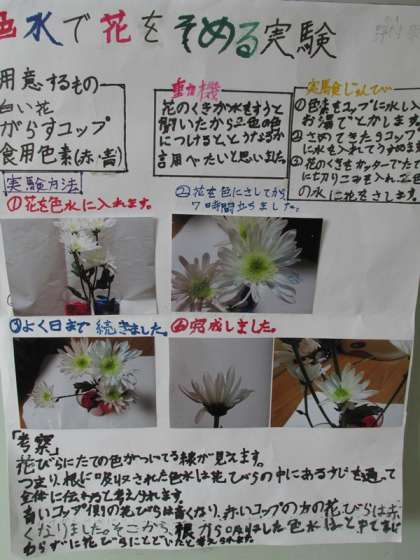 色水で花をそめる実験
用意するもの
白い花
がらすコップ
食用色素(赤・青)
動機
花のくきが水をすうと
聞いたから2色の色
につけると、どうなるか
調べたいと思いました。
実験じゅんび
①色素をコップに水しん
お湯でとかします。
②さめてきたらコップ
に水を入れてうすめます
③花のくきをカッターでたて
に切りこみを入れ2色
の水に花をさします。
実験方法
①花を色水に入れます。
②花を色にさしてから
7時間立ちました。
③よく日まで続きました。
④完成しました。
「考察」
花びらにたての色がついてる線が見えます。
つまり、根に吸収された色水は花びらの中にあるすじを通って
全体に伝わると考えられます。
青いコップ側の花びらは青くなり、赤いコップの方の花びらは赤
くなりました。そこから、根から吸収した色水は
わらずに花びらにとどいたと考えられます。